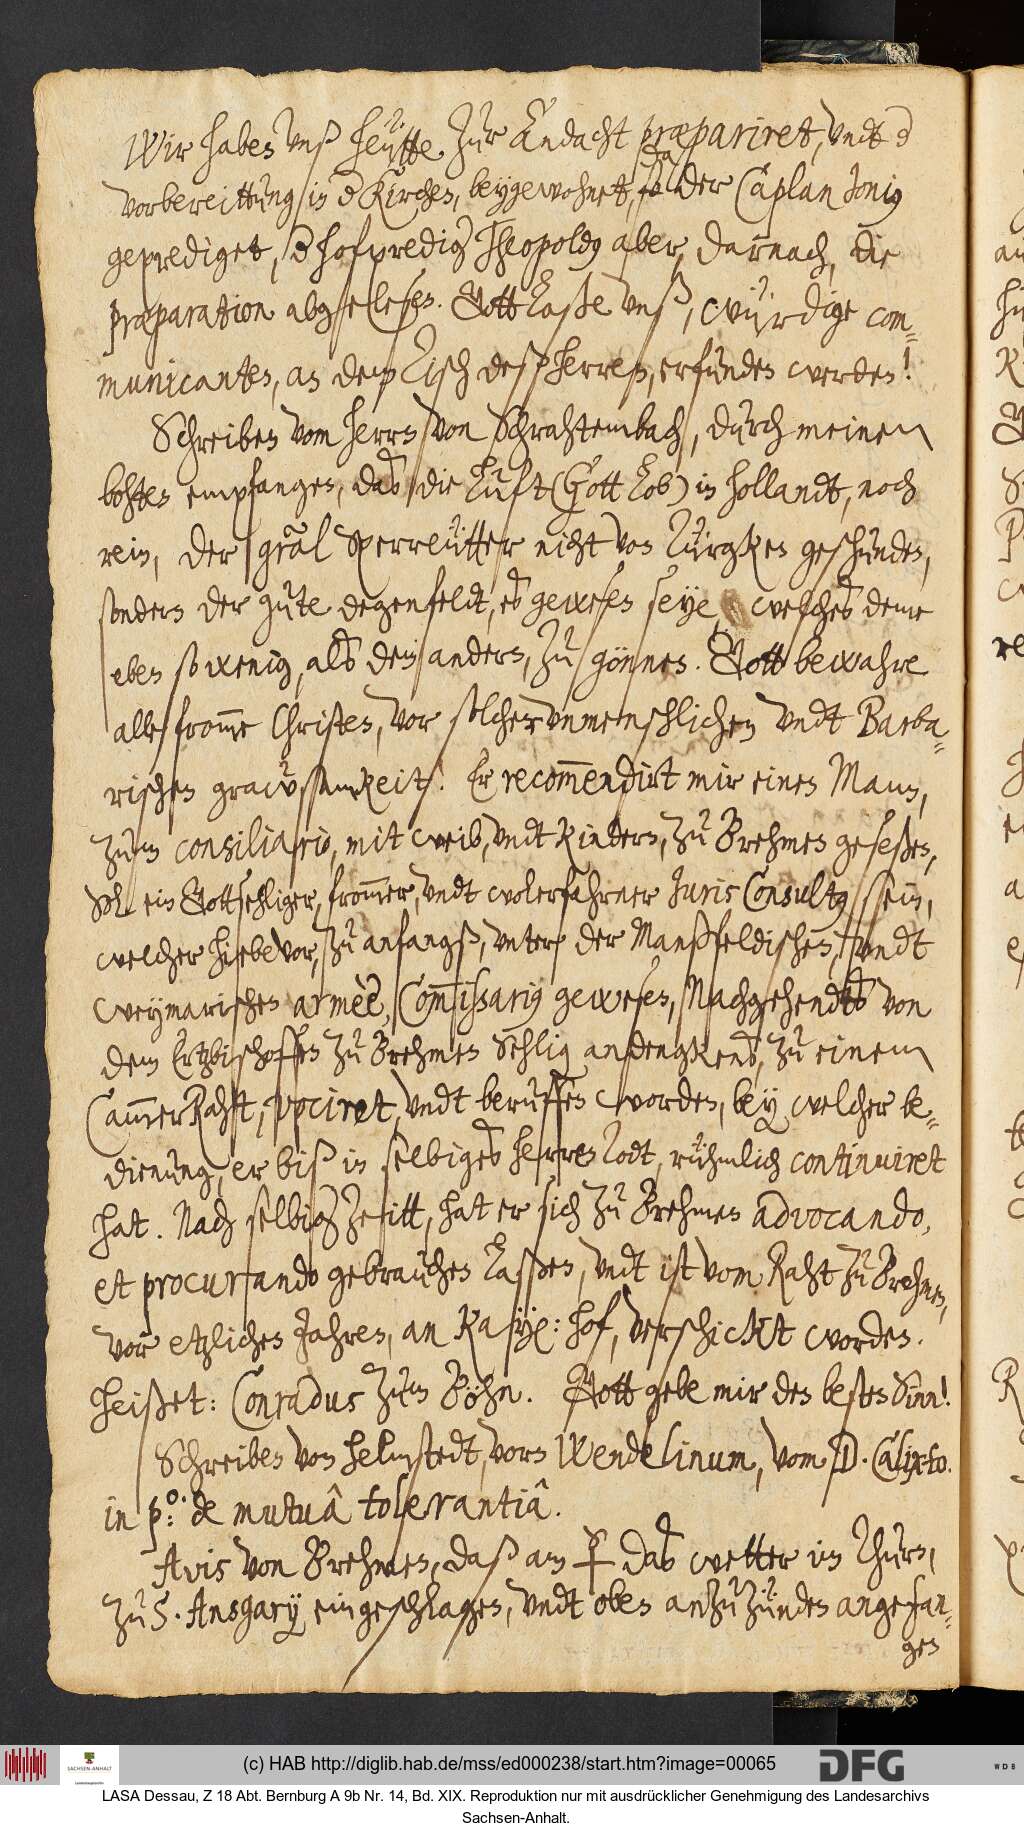 Wir haben unß heütte zur Andacht præpariret, undt d
vorbereittung in d Kirchen, beygewohnet, da der Caplan Jonig
geprediget, d hofpredig Theopoldg aber, darnach, die
præparation abgelesen. Gott laße unß, würdige com=
municanten, an dem Tisch deß herren, erfunden werden!
Schreiben vom herrn von Schrahtembach, durch meinen
bohten empfangen, daß die Luft (Gott Lob) in hollandt, noch
rein, der gräl Sperreütter nicht von Türgken geschunden,
sondern der gute degenfeldt, es gewesen seye, welches deme
eben so wenig, als dem andern, zu gönnen. Gott bewahre
alle from̄e Christen, vor solcher unmenschlichen undt Barba=
rischen grawsamkeit! Er recom̄endirt mir einen Mann,
zum consiliario, mit weib, undt kindern, zu Brehmen geseßen,
Sol ein Gottsehliger, from̄er, undt wolerfahrner Juris Consultg sein,
welcher hiebevor, zu anfangß, unter der Manßfeldischen, undt
Weymarischen armèe, Com̄issarig gewesen, Nachgehendts von
dem Ertzbischoffen zu Brehmen Sehlig andengkens, zu einem
Cam̄erRaht, vociret, undt beruffen worden, bey welcher be=
dienung, er biß in selbiges herren Todt, rühmlich continuiret
hat. Nach selbig Zeitt, hat er sich zu Brehmen advocando,
et procurando gebrauchen laßen, undt ist vom Raht zu Brehmen,
vor etzlichen Jahren, an Kayße: hof, verschickt worden.
heißet: Conradus zum Böhn. Gott gebe mir den besten Sinn!
Schreiben von helmstedt, vorn Wendelinum, vom D. Calixto.
in p:o: de mutuâ tolerantiâ.
Avis von Brehmen, daß am ♀ das wetter im Thurn,
zu S. Ansgarij eingeschlagen, undt oben anzuzünden angefan=
gen
(c) HAB http://diglib.hab.de/mss/ed000238/start.htm?image=00065
SACHSEN-ANHALT
DFG
WDB
LASA Dessau, Z 18 Abt. Bernburg A 9b Nr. 14, Bd. XIX. Reproduktion nur mit ausdrücklicher Genehmigung des Landesarchivs
Sachsen-Anhalt.